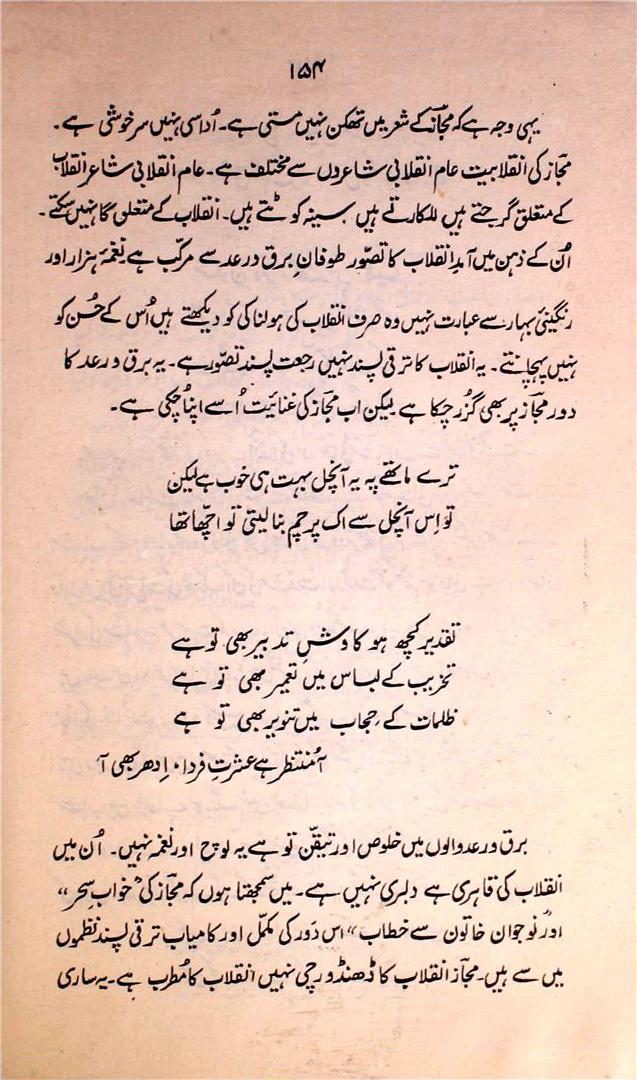 ۱۵۴
یہی وجہ ہے کہ مجازؔ کے شعر میں تھکن نہیں مستی ہے۔ اُداسی نہیں سرخوشی ہے۔
مجازؔ کی انقلابیت عام انقلابی شاعروں سے مختلف ہے۔ عام انقلابی شاعر انقلاب
کے متعلق گرجتے ہیں للکارتے ہیں سینہ کوٹتے ہیں۔ انقلاب کے متعلق گا نہیں سکتے۔
اُن کے ذہن میں آمدِ انقلاب کا تصوّر طوفانِ برق و رعد سے مرکّب ہے نغمۂ ہزار اور
رنگینئ بہار سے عبارت نہیں وہ صرف انقلاب کی ہولناکی کو دیکھتے ہیں اُس کے حُسن کو
نہیں پہچانتے۔ یہ انقلاب کا ترقی پسند نہیں رجعت پسند تصوّر ہے۔ یہ برق و رعد کا
دور مجازؔ پر بھی گزر چکا ہے لیکن اب مجازؔ کی غنائیت اُسے اپنا چکی ہے۔
ترے ماتھے پہ یہ آنچل بہت ہی خوب ہے لیکن
تو اِس آنچل سے اک پرچم بنا لیتی تو اچّھا تھا
تقدیر کچھ ہو کاوشِ تدبیر بھی تو ہے
تخریب کے لباس میں تعمیر بھی تو ہے
ظلمات کے حجاب میں تنویر بھی تو ہے
آ منتظر ہے عشرتِ فردا، اِدھر بھی آ
برق و رعد والوں میں خلوص اور تیقّن تو ہے یہ لوچ اور نغمہ نہیں۔ اُن میں
انقلاب کی قاہری ہے دلبری نہیں ہے۔ میں سمجھتا ہوں کہ مجازؔ کی "خواب سحر"
اور "نوجوان خاتون سے خطاب" اس دَور کی مکمّل اور کامیاب ترقی پسند نظموں
میں سے ہیں۔ مجازؔ انقلاب کا ڈھنڈورچی نہیں انقلاب کا مُطرب ہے۔ یہ ساری